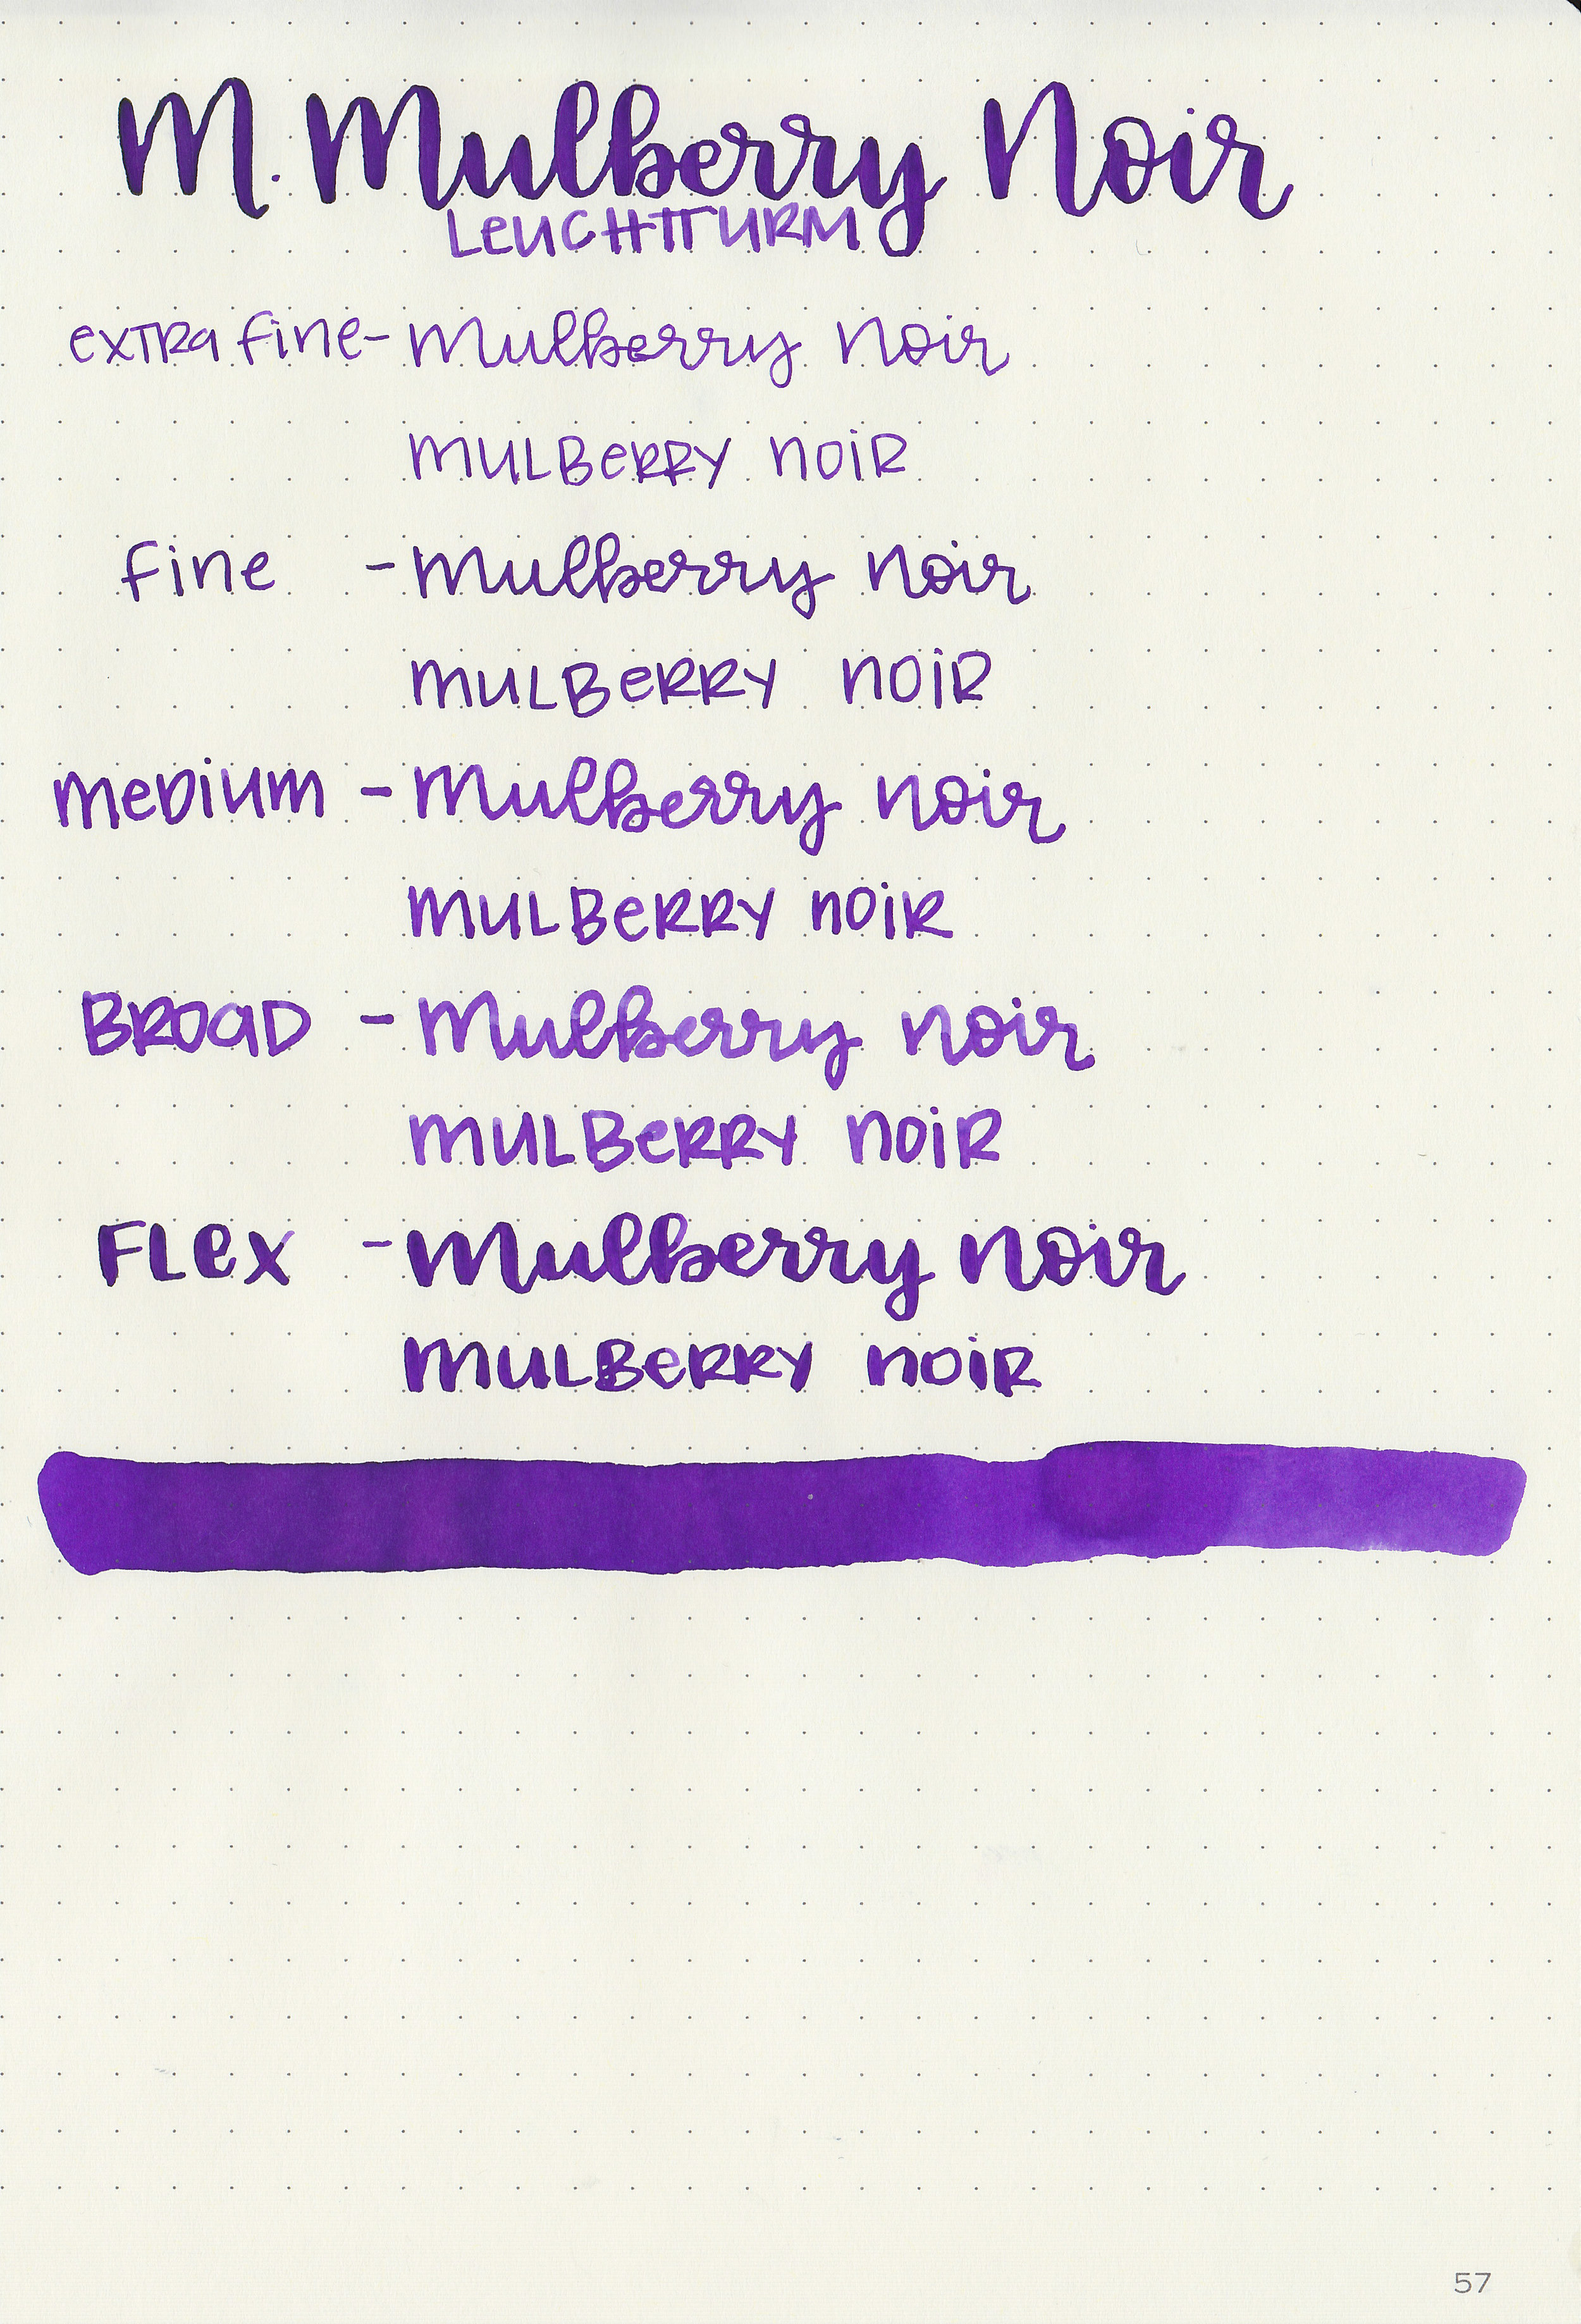 M. Mulberry Noir
LEUCHTTURM
extra fine - Mulberry Noir
MULBeRRY NOiR
fine - Mulberry Noir
MULBeRRY NOiR
MeDiUM - Mulberry Noir
MULBeRRY NOiR
BROaD - Mulberry Noir
MULBeRRY NOiR
FLeX - Mulberry Noir
MULBeRRY NOiR
57